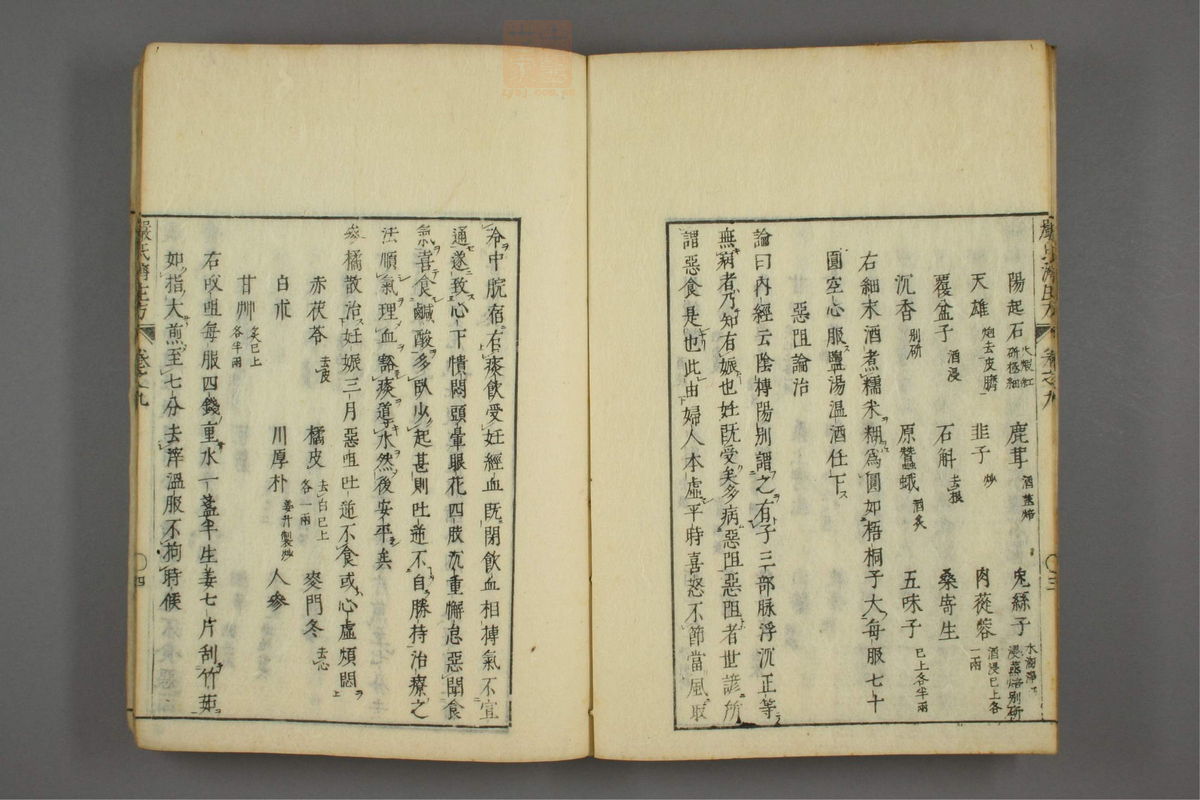 陽起石 火煅紅研極細 鹿茸 酒蒸焙 兔絲子 水淘淨酒浸蒸焙別研
天雄 炮去皮臍 韭子 炒 肉蓯蓉 酒浸已上各一兩
覆盆子 酒浸 石斛 去根 桑寄生
沉香 別研 原蠶蛾 酒炙 五味子 已上各半兩
右細末酒煮糯米糊爲圓如梧桐子大每服七十
圓空心服鹽湯溫酒任下
惡阻論治
論曰内經云陰摶陽別謂之有子三部脉浮沉正等
無病者乃知有娠也姙既受矣多病惡阻惡阻者世諺所
謂惡食是也此由婦人本虛平時喜怒不節當風取
嚴氏濟生方 卷之九 三
冷中脘宿有痰飲受姙經血既閉飲血相摶氣不宣
通遂致心下憒悶頭暈眼花四肢沉重懈怠惡聞食
氣喜食鹹酸多臥少起甚則吐逆不自勝持治療之
法順氣理血豁痰導水然後安平矣
參橘散治妊娠三月惡咀吐逆不食或心虛煩悶
赤茯苓 去皮 橘皮 去白已上各一兩 麥門冬 去心
白朮 川厚朴 姜汁製炒 人參
甘艸 炙已上各半兩
右㕮咀每服四錢重水一盞半生姜七片刮竹茹
如指大煎至七分去滓溫服不拘時候
嚴氏濟生方 卷之九 四